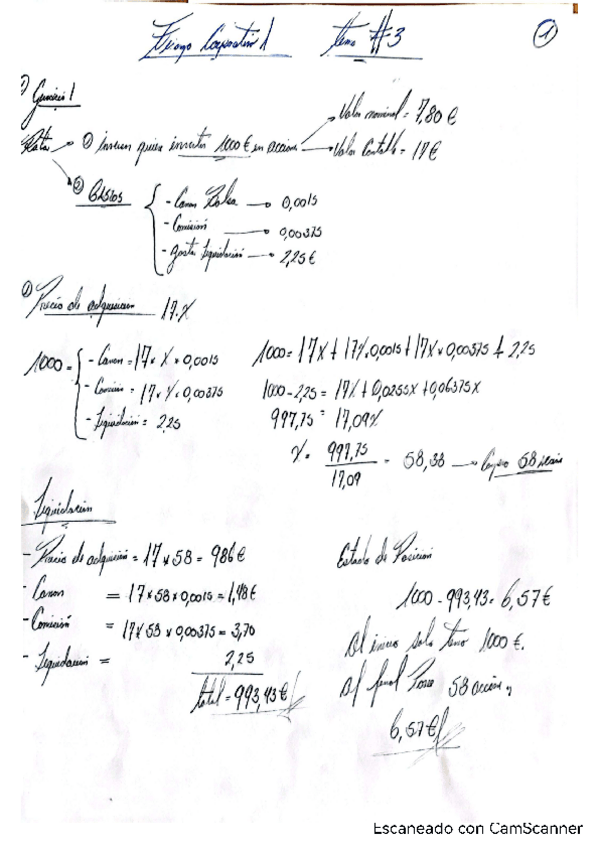 tema #3
1
Ejercicio 1
Datos → ① inversor quiere invertir 1000 € en acciones
Valor nominal = 7,80 €
Valor Contable = 17 €
② Gastos
- Canon Bolsa → 0,0015
- Comisión → 0,00375
- gastos liquidación → 2,25 €
① Precio de adquisicion 17.X
1000 =
- Canon = 17 x X x 0,0015
- Comision = 17 x X x 0,00375
- Liquidacion = 2,25
1000 = 17X + 17X.0,0015 + 17X x 0,00375 + 2,25
1000 - 2,25 = 17X + 0,0255X + 0,06375X
997,75 = 17,09X
X = 997,75 / 17,09 = 58,38 → Compro 58
Liquidacion
- Precio de adquisición = 17 x 58 = 986 €
- Canon = 17 x 58 x 0,0015 = 1,48 €
- Comisión = 17 x 58 x 0,00375 = 3,70
- Liquidacion = 2,25
total = 993,43 €
Estado de Posicion
1000 - 993,43 = 6,57 €
Al inicio solo tenia 1000 €.
Al final Posee 58 accion y
6,57 €
Escaneado con CamScanner